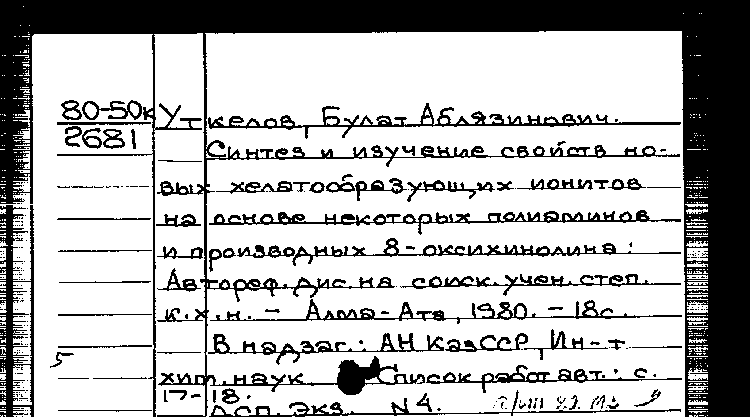 80-50к Уткелов, Булат Аблязинович.
2681
Синтез и изучение свойств но-
вых хелатообразующих ионитов
на основе некоторых полиаминов
и производных 8-оксихинолина:
Автореф. дис. на соиск. учен. степ.
к.х.н. - Алма-Ата, 1980. - 18с.
В надзаг.: АН КазССР, Ин-т
5
хим. наук. Список работ авт.: с.
17-18.
Дсп. Экз. N 4.